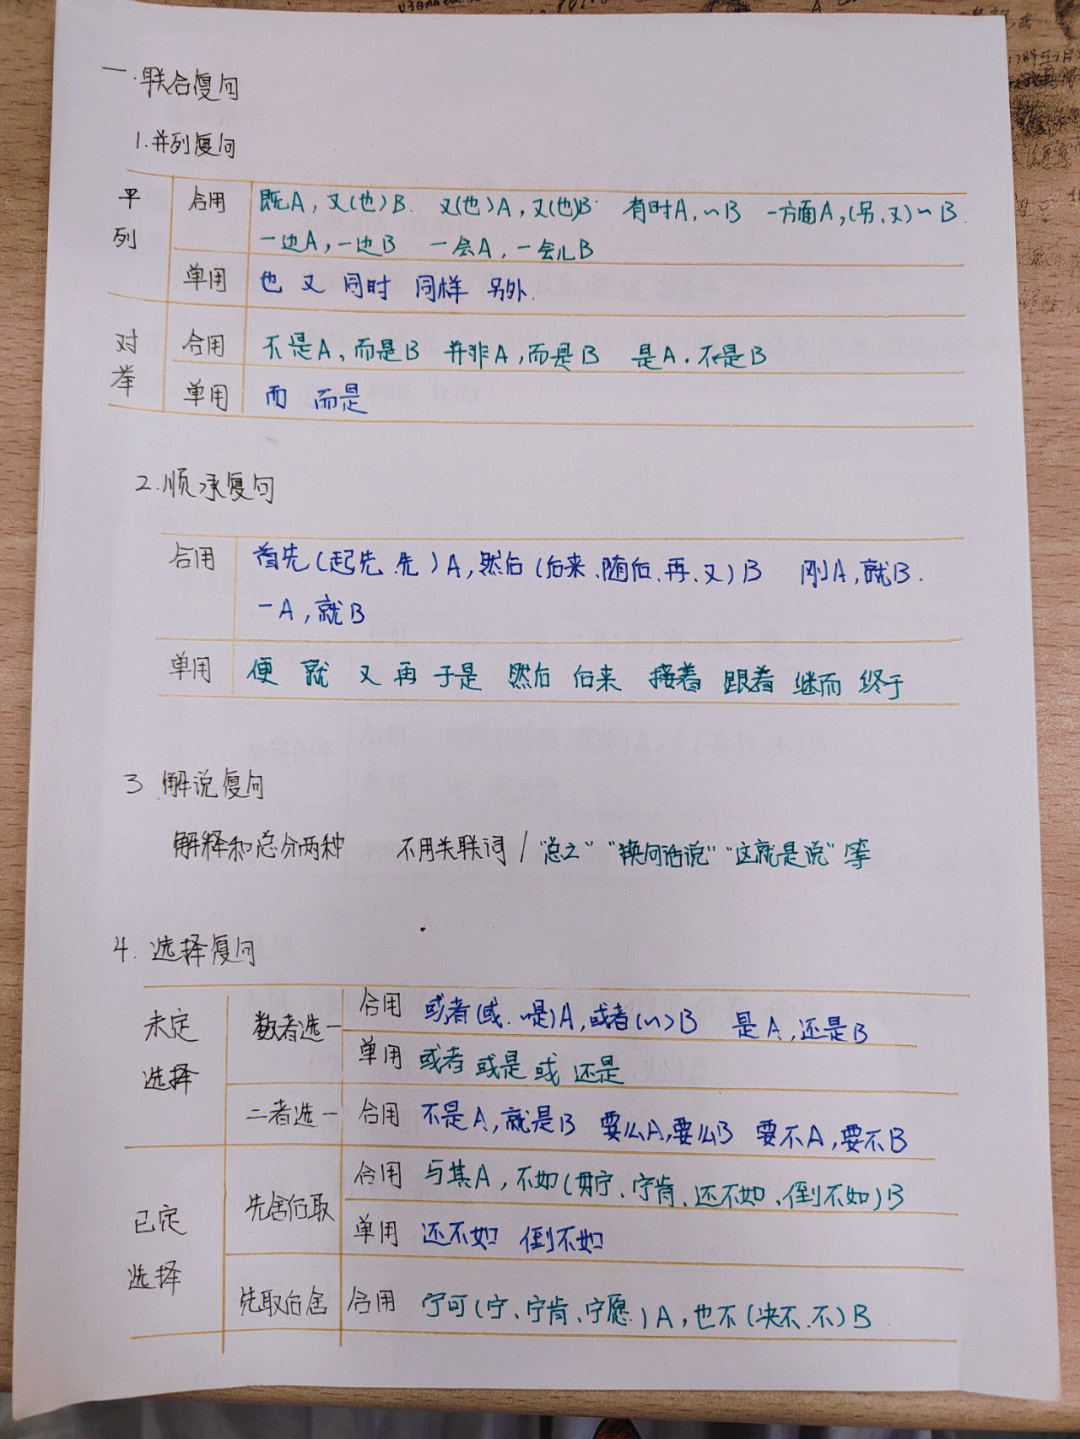 一.联合复句
1.并列复句
平列 合用 既A,又(也)B. 又(也)A,又(也)B. 有时A,~B 一方面A,(另、又)~B.
一边A,一边B 一会A,一会儿B
单用 也 又 同时 同样 另外.
对举 合用 不是A,而是B 并非A,而是B 是A.不是B
单用 而 而是
2.顺承复句
合用 首先(起先、先)A,然后(后来、随后、再、又)B 刚A,就B.
一A,就B
单用 便 就 又 再 于是 然后 后来 接着 跟着 继而 终于
3.解说复句
解释和总分两种 不用关联词/"总之""换句话说""这就是说"等
4.选择复句
未定选择 数者选一 合用 或者(或、~是)A,或者(~)B 是A,还是B
单用 或者 或是 或 还是
二者选一 合用 不是A,就是B 要么A,要么B 要不A,要不B
已定选择 先舍后取 合用 与其A,不如(毋宁、宁肯、还不如、倒不如)B
单用 还不如 倒不如
先取后舍 合用 宁可(宁、宁肯、宁愿)A,也不(决不、不)B